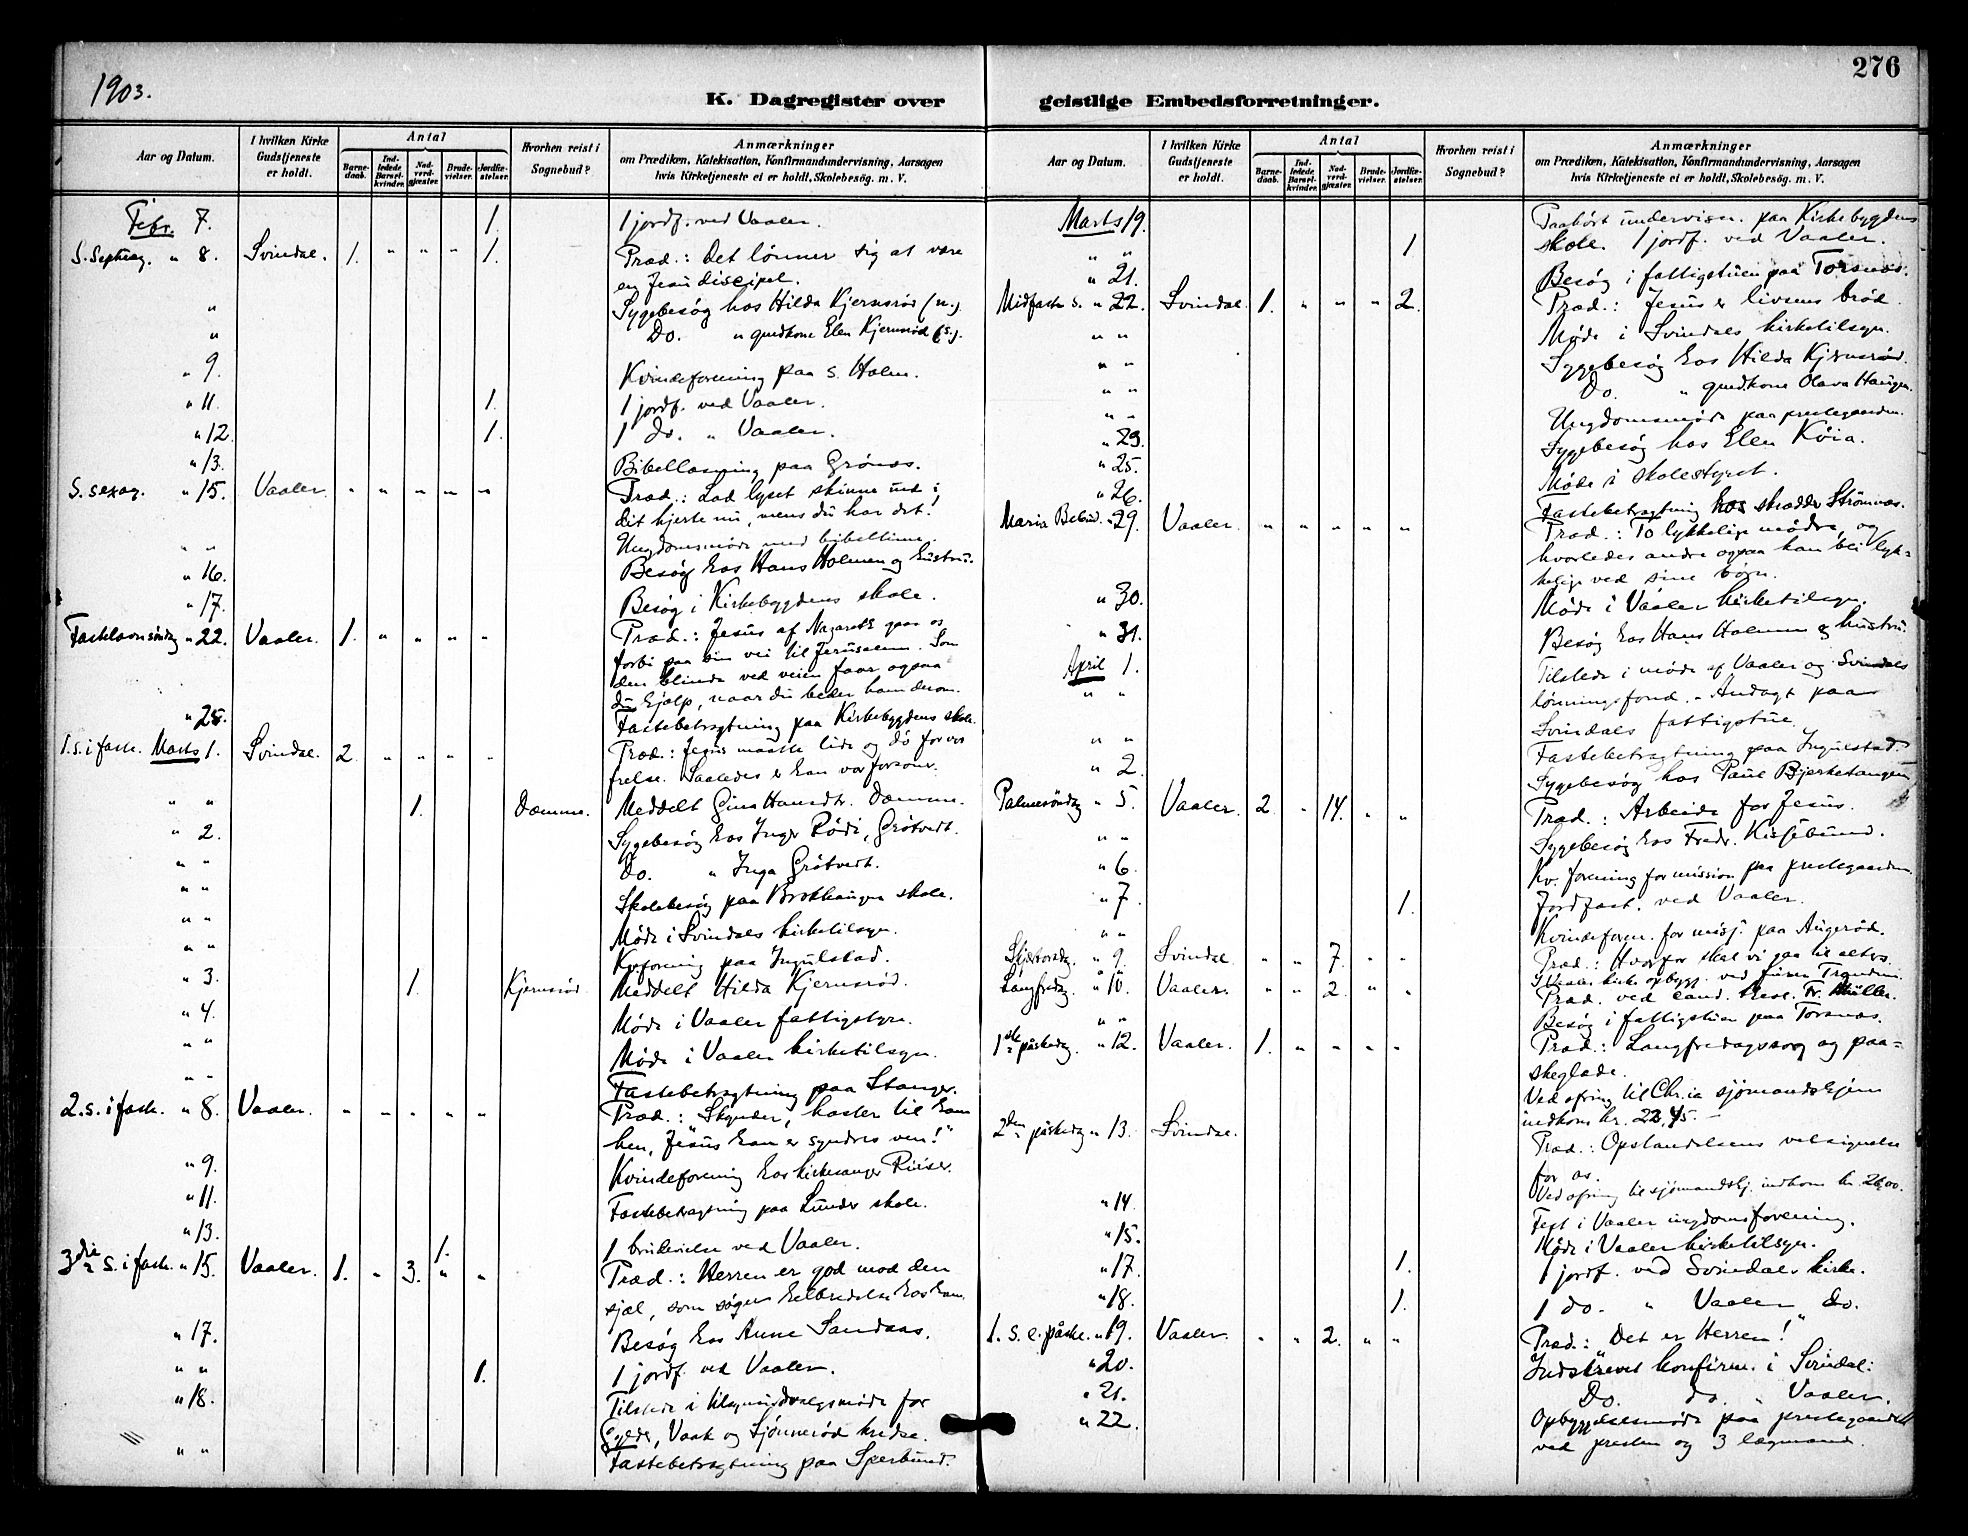 276
1903.
K. Dagregister over geistlige Embedsforretninger.
Aar og Datum.
I hvilken Kirke Gudstjeneste er holdt.
Antal
Barnedaab.
Indledede Barselkvinder.
Nadverdgjæster.
Brudevielser.
Jordfæstelser.
Hvorhen reist i Sognebud?
Anmærkninger
om Prædiken, Katekisation, Konfirmandundervisning, Aarsagen
hvis Kirketjeneste ei er holdt, Skolebesøg. m. V.
Febr. 7. 1. 1 jordf. ved Vaaler.
S. Septuag. " 8. Svindal. 1. " " " 1. Præd.: Det lønner sig at være
en Jesu discipel.
" Sygebesøg hos Hilda Kjernsrød (n.).
" Do. " gmdkone Elen Kjernsrød (s.).
" 9. Kvindeforening paa s. Holm.
" 11. 1. 1 jordf. ved Vaaler.
" 12. 1. 1 do. " Vaaler.
" 13. Bibellæsning paa Grønæs.
S. sexag. " 15. Vaaler. " " " " " Præd.: Lad lyset skinne ind i
dit hjerte nu, mens du har det!
" " Ungdomsmøde med bibeltime.
" 16. Besøg hos Hans Holmen og hustru.
" 17. Besøg i Kirkebygdens skole.
Fastelavnsøndag " 22. Vaaler. 1. " " " " Præd.: Jesus af Nazaret gaar os
forbi paa sin vei til Jerusalem. Som
den blinde ved veien faar ogsaa
du hjælp, naar du beder ham derom.
" 25. Fastebetragtning paa Kirkebygdens skole.
1. s. i fast. Marts 1. Svindal. 2. " " " " Præd.: Jesus maatte lide og dø for vor
frelse. Saaledes er han vor forsoner.
" " 1. Damme. Meddelt Gina Hansdt. Damme.
" 2. Sygebesøg hos Inger Rødi, Grøtvedt.
" " Do. " Inga Grøtvedt.
" " Skolebesøg paa skole.
" " Møde i Svindals kirketilsyn.
" " Kv.forening paa Ingulstad.
" 3. 1. Kjernsrød. Meddelt Hilda Kjernsrød.
" 4. Møde i Vaaler fattigstyre.
" " Møde i Vaaler kirketilsyn.
" " Fastebetragtning paa Stanger.
2. s. i fast. " 8. Vaaler. " " " " " Præd.: "Skynder, haster til ham
hen, Jesus han er synderes ven!"
" 9. Kvindeforening hos kirkesanger Riiser.
" 11. Fastebetragtning paa Lunder skole.
" 13. 1. 1 brudevielse ved Vaaler.
3die s. i fast. " 15. Vaaler. 1. " 3. " " Præd.: Herren er god mod den
sjæl, som søger helbredelse hos ham.
" 17. Besøg hos Anne Sandaas.
" " 1. 1 jordf. ved Vaaler.
" 18. Tilstede i tilsynsudvalgsmøde for
Gylder, Vaak og Sjønnerød kredse.
" " Fastebetragtning paa Sperbund.
Aar og Datum.
I hvilken Kirke Gudstjeneste er holdt.
Antal
Barnedaab.
Indledede Barselkvinder.
Nadverdgjæster.
Brudevielser.
Jordfæstelser.
Hvorhen reist i Sognebud?
Anmærkninger
om Prædiken, Katekisation, Konfirmandundervisning, Aarsagen
hvis Kirketjeneste ei er holdt, Skolebesøg. m. V.
Marts 19. Paahørt underviser. paa Kirkebygdens
" " 1 skole. 1 jordf. ved Vaaler.
" 21. Besøg i fattigstuen paa Torsnæs.
Midfaste s. " 22. Svindal. 1. " " " 2. Præd.: Jesus er livsens brød.
" " Møde i Svindals kirketilsyn.
" " Sygebesøg hos Hilda Kjernsrød.
" " Do. " gmdkone Olava Haugen.
" " Ungdomsmøde paa prestegaarden.
" 23. Sygebesøg hos Elen Köia.
" 25. Møde i skolestyret.
" 26. Fastebetragtning hos skrædder Strømnæs.
Maria Bebud. " 29. Vaaler. " " " " " Præd.: To lykkelige mødre, og
hvorledes andre ogsaa kan bli lyk-
kelige ved sine børn.
" 30. Møde i Vaaler kirketilsyn.
" 31. Besøg hos Hans Holmen & hustru.
April 1. Tilstede i møde af Vaaler og Svindals
" " lønningsfond. - Andagt paa
Svindals fattigstue.
" " Fastebetragtning paa Ingulstad.
" 2. Sygebesøg hos Paul Bjerketangen
Palmesöndag " 5. Vaaler. 2. " 14. " " Præd.: Arbeide for Jesus.
" " Sygebesøg hos Fredr. Kirkebund.
" 6. Kv. forening for mission paa prestegaarden.
" 7. 1. Jordfæst. ved Vaaler.
" " Kvindeforen. for misj. paa Augerød.
Skjærtorsdg. " 9. Svindal. " " 7. " " Præd.: Hvorfor skal vi gaa til alters.
Langfredg. " 10. Vaaler. " " 2. " " Præd. ved cand. theol. Fr. Müller.
" " Besøg i fattigstuen paa Torsnæs.
1ste påskedg. " 12. Vaaler. 1. " " " " Præd.: Langfredagssorg og paa=
skeglæde.
Ved ofring til Chr.ia sjømandshjem
indkom kr. 22,45.
2den påskedg " 13. Svindal. Præd.: Opstandelsens velsignelse
for os.
Ved ofring til sjömandshj. indkom kr. 26,00.
" 14. Fest i Vaaler ungdomsforening.
" 15. Møde i Vaaler kirketilsyn.
" 17. 1. 1 jordf. ved Svindals kirke.
" 18. 1. 1 do. " Vaaler do.
1. s. e. påske. " 19. Vaaler. " " 2. " " Præd.: "Det er Herren!"
" 20. Indskrevet konfirm. i Svindal.
" 21. Do. do. " Vaaler.
" 22. Opbyggelsesmøde paa prestegaarden
ved presten og 3 lægmænd.